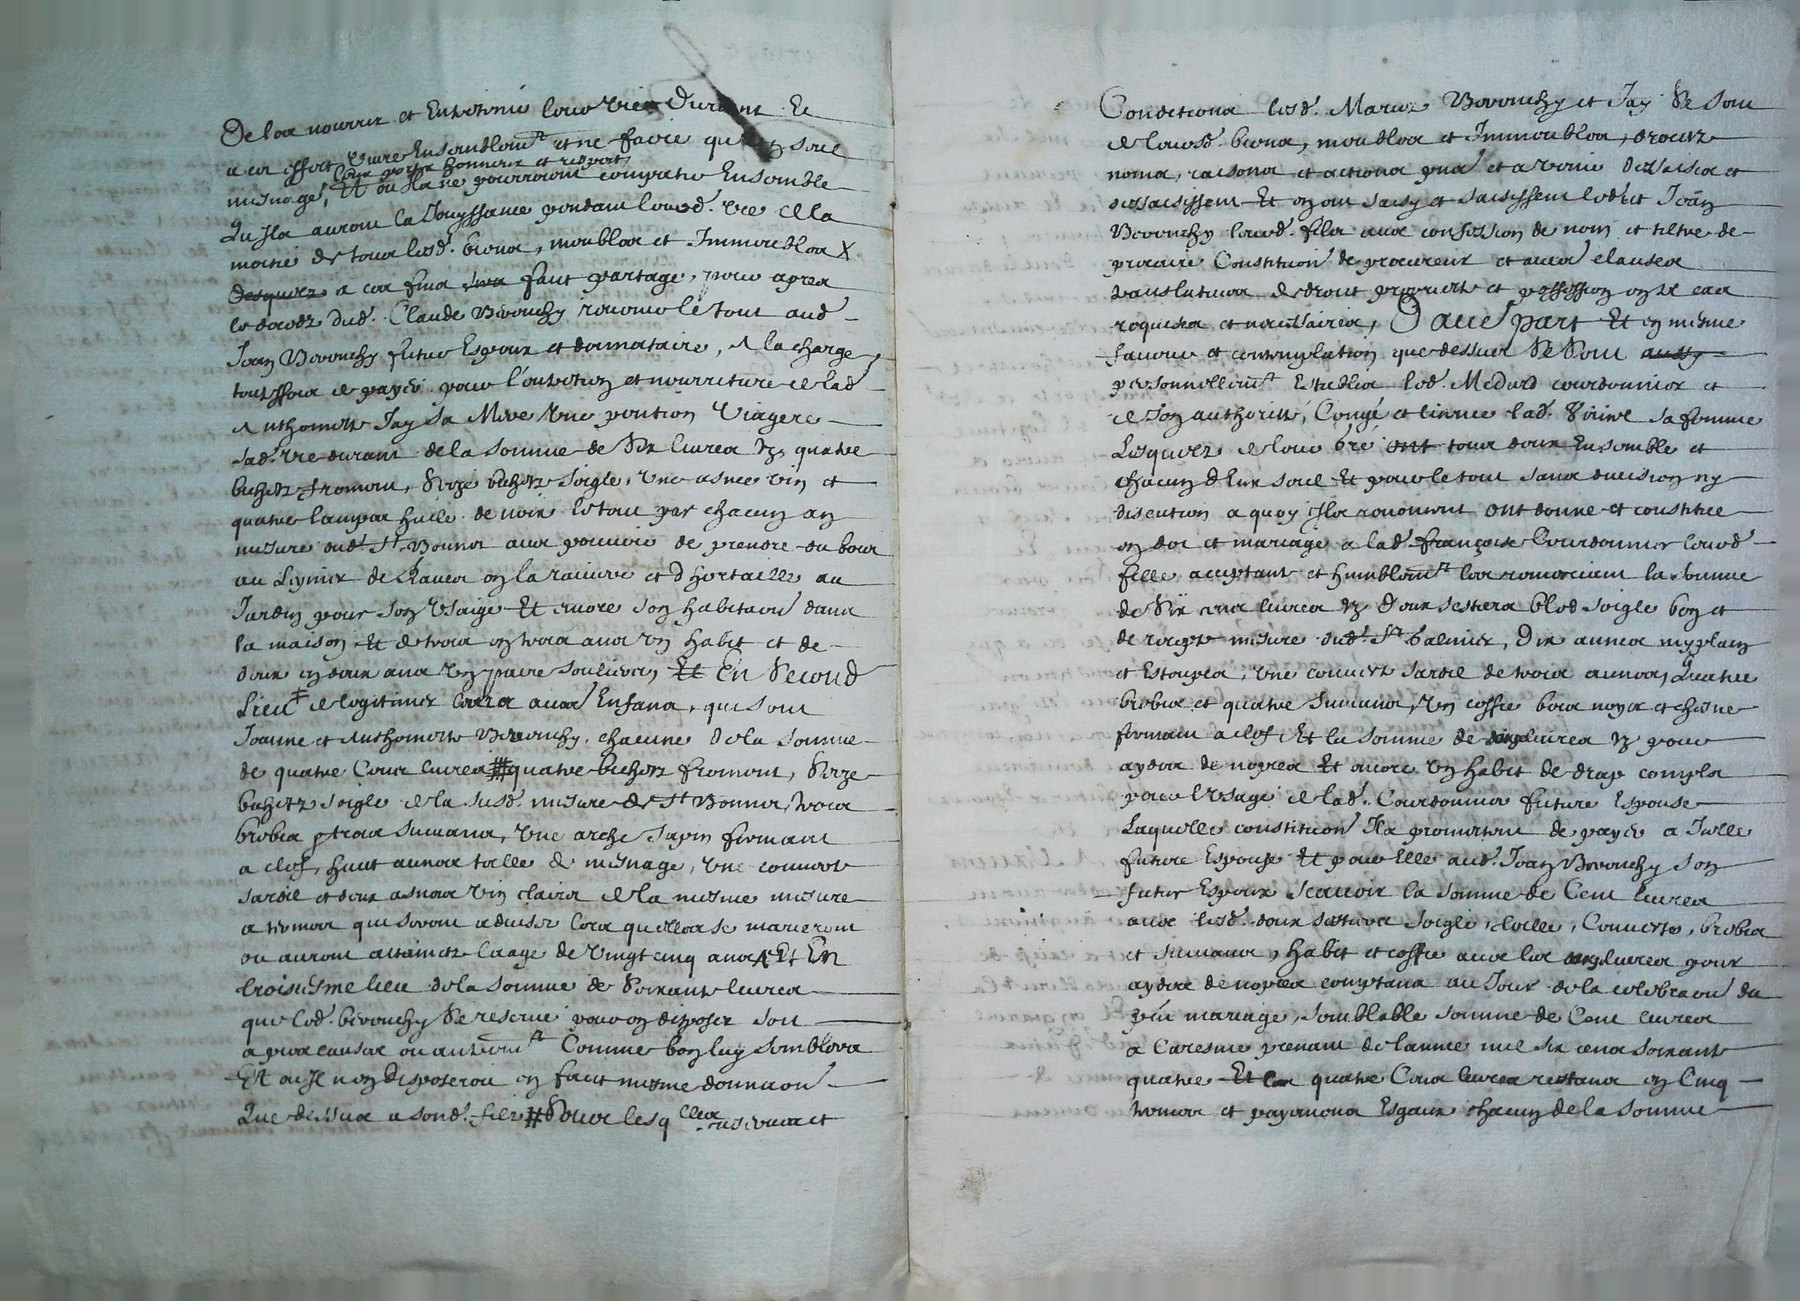 De les nourrir et Entretenir leurs vies Durant Et
a cet effect vivre Ensemblem.t et ne faire qu'un seul
leur porter honneur et respect
mesnage, Et ou Ils ne pourroient compatir Ensemble
Qu Ils auront la Jouyssance pendant leursd. vies de la
moitié de tous lesd. biens, meubles et Immeubles X
desquelz a ces fins sera fait partage, pour apres
le deceds dud. Claude Berouchy revenir le tout aud
Jean Berouchy futur Espoux et donnataire, A la charge
touteffois de payer pour l'entretien et nourriture de lad
Anthoinette Jay sa Mere Une pention Viagere
sad. vie durant de la somme de Six livres tz, quatre
bichetz froment, Seize bichetz seigle, Une asnee vin et
quatre lampes huille de noix le tout par chacun an
mesure dud. St Bonnet avec pouvoir de prendre du bois
au Leynier de Raves en la raisiere et d hortailles au
Jardin pour son Usaige Et encore son habitaon dans
la maison Et de trois en trois ans Un habit et de
deux en deux ans Un paire soulliers, Et En Second
Lieu de legitimer leurs autres Enfans, qui sont
Jeanne et Anthoinette Berouchy, chacune de la somme
de quatre Cens livres # quatre bichetz froment, Seize
bichetz seigle de la susd. mesure de St Bonnet, trois
brebis et trois suivans, Une arche sapin fermant
a clef, huit aunes toille de mesnage, Une couverte
sardie et deux asnees vin clairet de la mesme mesure
a termes qui seront advisés lors quelles se marieront
ou auront attaintz laage de Vingt cinq ans Et En
troisiesme lieu de la somme de Soixante livres
que led. berouchy Se reserve pour en disposer soit
a pies causes ou autrem.t Comme bon luy semblera
Et ou Il n en disposeroit en fait mesme donnaon
Que dessus a sond. filz # Soubz lesq.lles reserves et
Conditions lesd. Mariez Berouchy et Jay Se sont
de leursd. biens, meubles et Immeubles, droictz
noms, raisons et actions p̄ns et a venir dessaisis et
dessaisissent Et en ont saisy et saisissent led.it Jean
Berouchy leurd. filz avec confession de nom et tiltre de
precaire Constitution de procureur et autres clauses
translatives de droit proprieté et possession en tel cas
requises et necessaires, D autre part Et en mesme
faveur et contemplation que dessus Se Sont aussy
personnellem.t Establis led. Medard courdonnier et
de son authorité, Congé et licence lad. Virine sa femme
Lesquelz de leur gré ont tous deux Ensemble et
chacun d Eux seul Et pour le tout sans division ny
discution a quoy Ilz renoncent ont donné et constitué
en dot et mariage a lad. françoise Courdonnier leurd
fille acceptant et humblem.t les remerciant la somme
de Six cens livres tz deux sestiers bled seigle bon et
de recepte mesure dud. St Galmier, Dix aunes my plain
et Estoupes, Une couverte sardie de trois aunes, Quatre
brebis et quatre suivans, Un coffre bois noyer et chesne
fermant a clef Et la somme de livres tz pour
ayder de nopces Et encore Un habit de drap complet
pour l Usage de lad. Courdonnier future Espouse
Laquelle constitution Ilz promettent de payer a Icelle
future Espouse Et pour Elle aud. Jean Berouchy son
futur Espoux Scavoir la somme de Cent livres
avec lesd. deux sestiers seigle, toille, Couverte, brebis
et suivans, habit et coffre avec les livres pour
ayder de nopces comptans au Jour de la celebraon du
p̄nt mariage, semblable somme de Cent livres
a Caresme prenant de lannee mil six cens soixante
quatre Et les quatre Cens livres restans en Cinq
termes et payemens Esgaux chacun de la somme